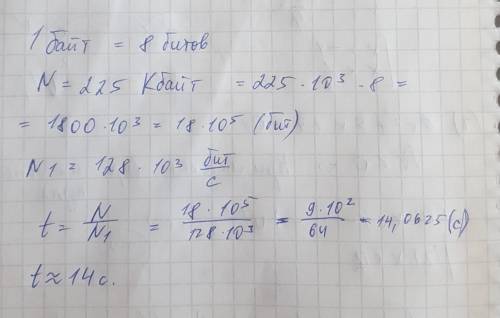 1 байт = 8 битов
N = 225 Кбайт = 225 · 10³ · 8 =
= 1800 · 10³ = 18 · 10⁵ (бит)
N1 = 128 · 10³ бит/с
t = N/N1 = 18 · 10⁵/128 · 10³ = 9 · 10²/64 = 14,0625 (с)
t ≈ 14 с.